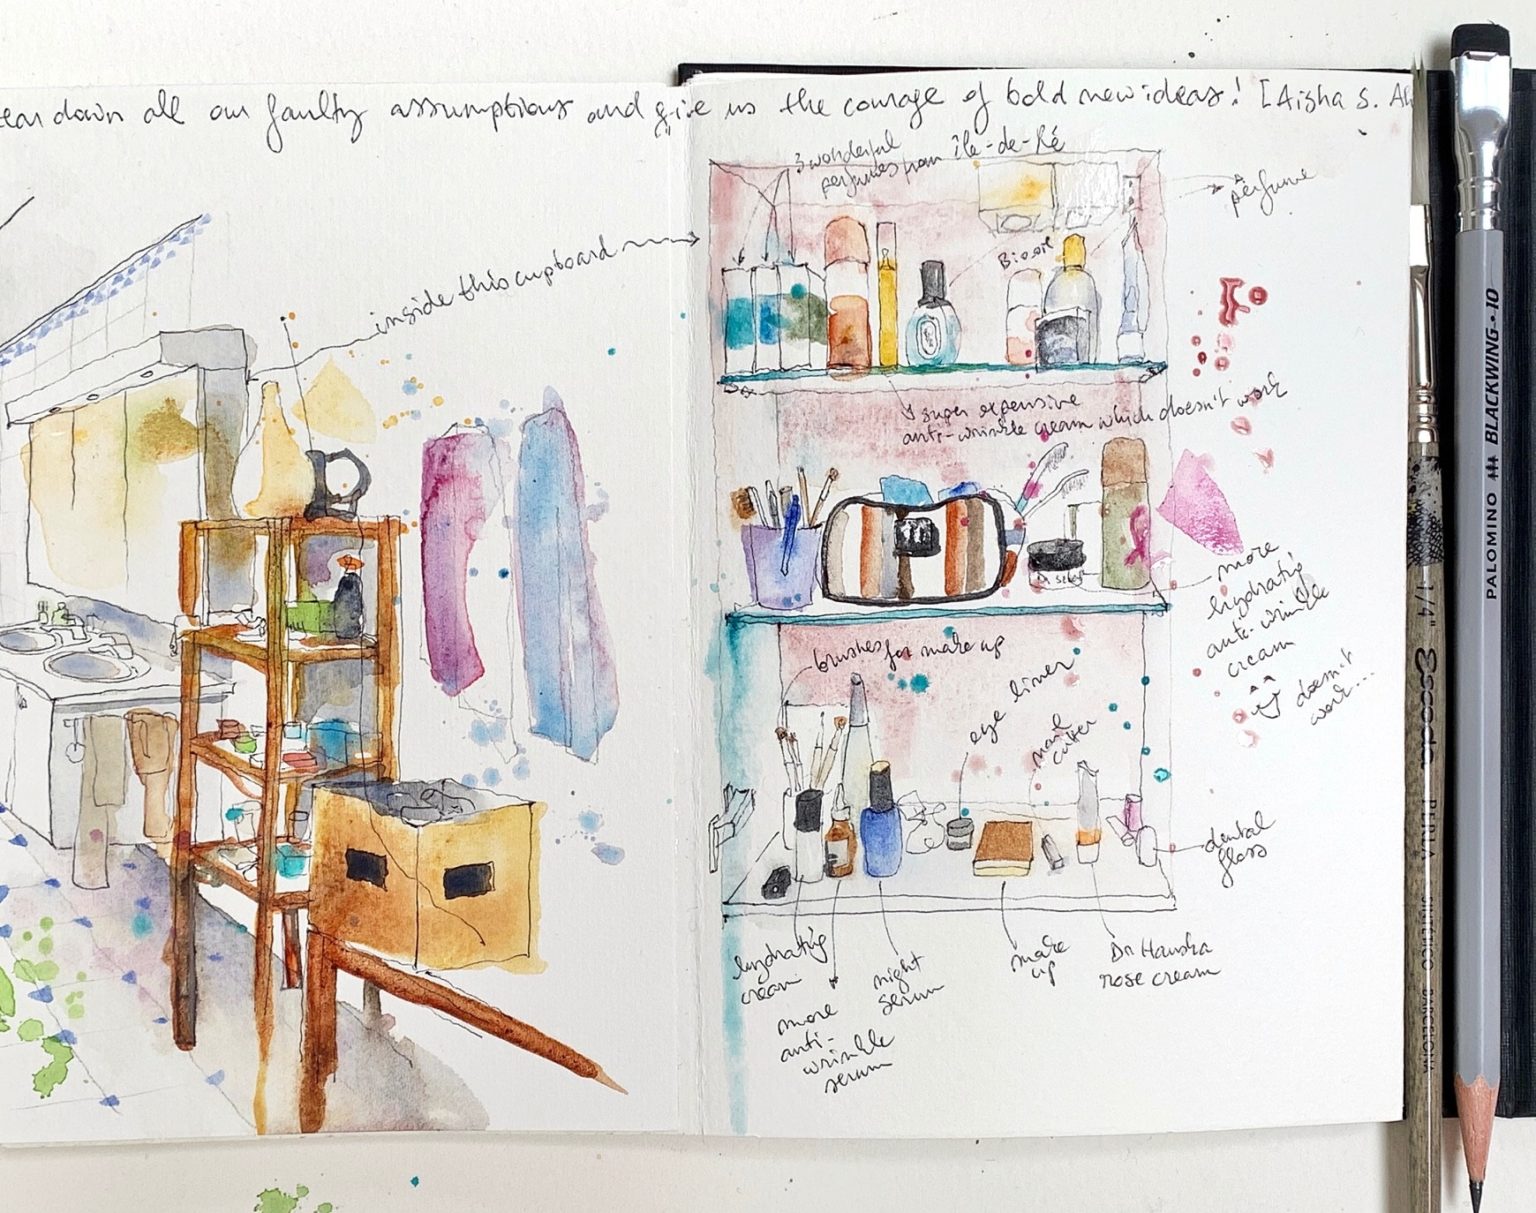 tear down all our faulty assumptions and give us the courage of bold new ideas! [Aisha S. A
3 wonderful
perfumes from île-de-Ré
perfume
inside this cupboard
Biooil
super expensive
anti-wrinkle cream which doesn't work
Dr.
more
hydrating
anti-wrinkle
cream
doesn't
work...
brushes for make up
eye liner
nail
cutter
dental
floss
hydrating
cream
more
anti-
wrinkle
serum
night
serum
make
up
Dr Hauska
rose cream
PALOMINO BLACKWING·10
1/4" Escoda PERLA SINTÉTICO BARCELONA